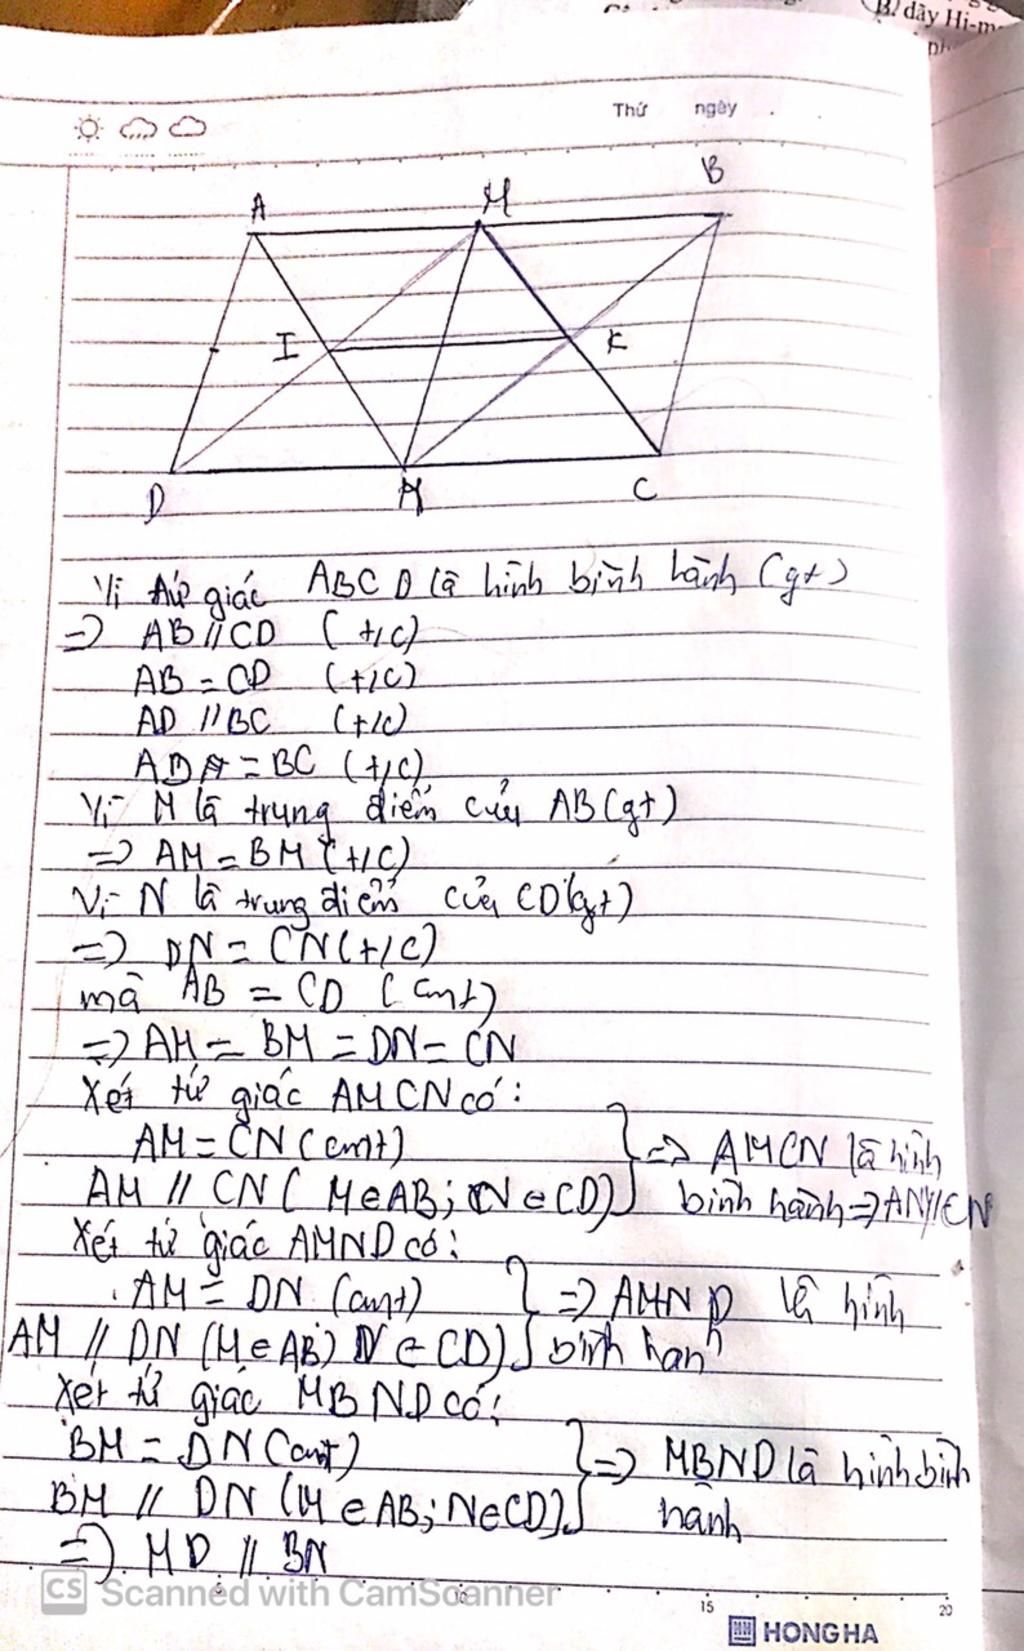 B. dãy Hi-m
Thứ ngày
A M B
I K
D M C
Vì tứ giác ABCD là hình bình hành (gt)
=> AB // CD (t/c)
AB = CD (t/c)
AD // BC (t/c)
AD = BC (t/c)
Vì M là trung điểm của AB (gt)
=> AM = BM (t/c)
Vì N là trung điểm của CD (gt)
=> DN = CN (t/c)
mà AB = CD (cmt)
=> AM = BM = DN = CN
Xét tứ giác AMCN có:
AM = CN (cmt) } => AMCN là hình
AM // CN (M∈AB; N∈CD) bình hành => AN // CN
Xét tứ giác AMND có:
AM = DN (cmt) } => AMND là hình
AM // DN (M∈AB) N∈CD) bình hành
Xét tứ giác MBND có:
BM = DN (cmt) } => MBND là hình bình
BM // DN (M∈AB; N∈CD) hành
=> MD // BN
CS Scanned with CamScanner
5 10 15 20
HONG HA